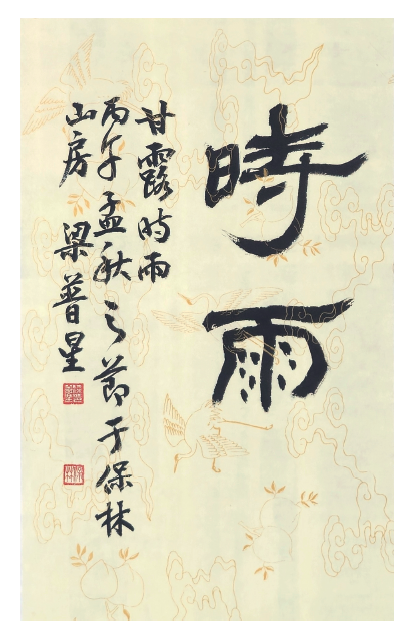 時雨
甘露時雨
丙午孟秋之節于保林
山房 梁普星